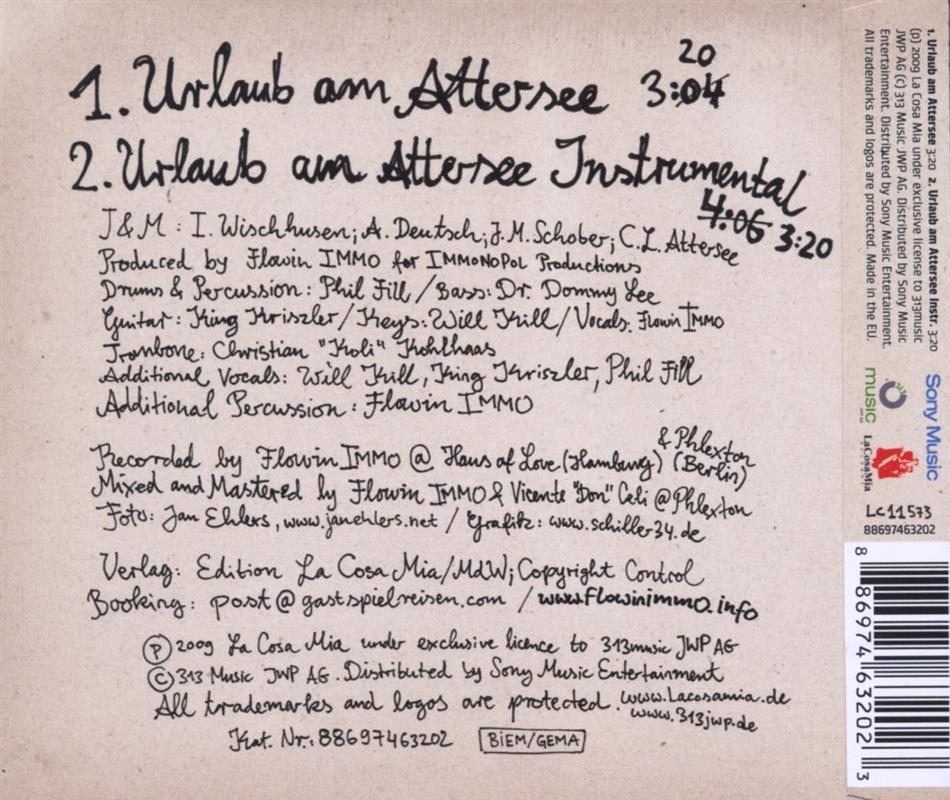 20
1. Urlaub am Attersee 3:04
2. Urlaub am Attersee Instrumental
4:06 3:20
J&M: I. Wischhusen; A. Deutsch; J.M. Schober; C.L. Attersee
Produced by Flowin IMMO for IMMONOPOL Productions
Drums & Percussion: Phil Fill / Bass: Dr. Dommy Lee
Guitar: King Kriszler / Keys: Will Kill / Vocals: Flowin IMMO
Trombone: Christian "Koli" Kohlhaas
Additional Vocals: Will Kill, King Kriszler, Phil Fill
Additional Percussion: Flowin IMMO
& Phlexton
Recorded by Flowin IMMO @ Haus of Love (Hamburg) (Berlin)
Mixed and Mastered by Flowin IMMO & Vicente "Don" Celi @Phlexton
Foto: Jan Ehlers, www.janehlers.net / Grafik: www.schiller34.de
Verlag: Edition La Cosa Mia/MdW; Copyright Control
Booking: post@gastspielreisen.com / www.flowinimmo.info
(P) 2009 La Cosa Mia under exclusive licence to 313music JWP AG
© 313 Music JWP AG. Distributed by Sony Music Entertainment
All trademarks and logos are protected. www.lacosamia.de
www.313jwp.de
Kat. Nr.: 88697463202 BIEM/GEMA
1. Urlaub am Attersee 3:20 2. Urlaub am Attersee Instr. 3:20
(p) 2009 La Cosa Mia under exclusive license to 313music
JWP AG (c) 313 Music JWP AG. Distributed by Sony Music
Entertainment. Distributed by Sony Music Entertainment.
All trademarks and logos are protected. Made in the EU.
Sony Music
music
LaCosaMia
LC11573
88697463202
8 86974 63202 3